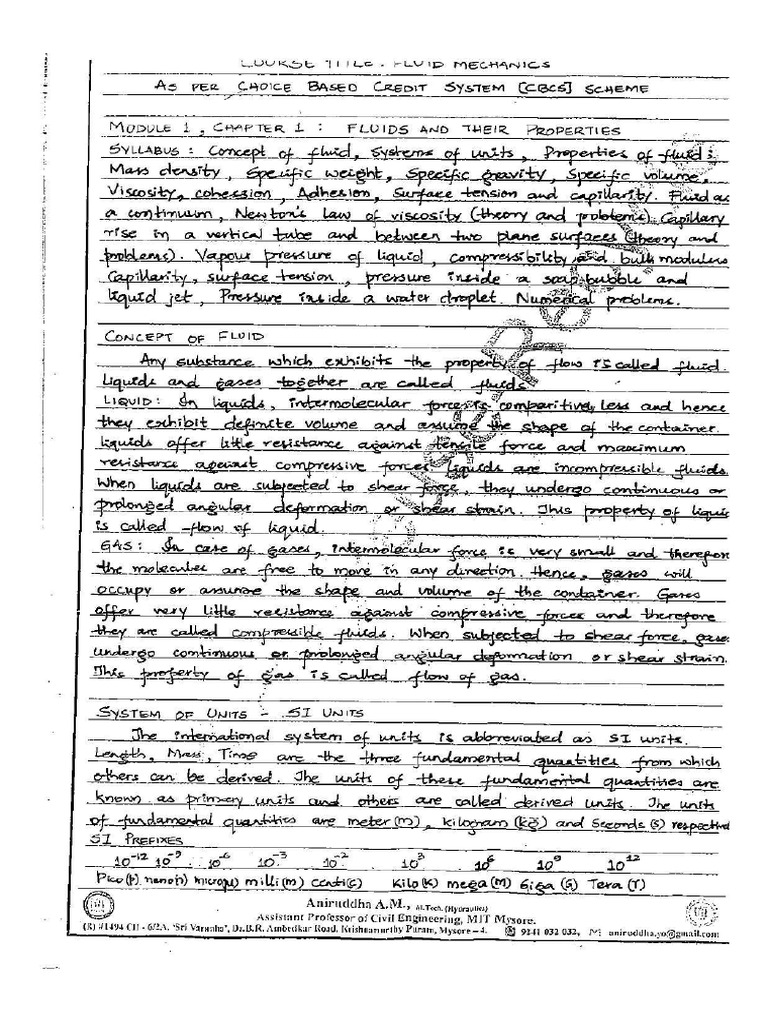 COURSE TITLE: FLUID MECHANICS
AS PER CHOICE BASED CREDIT SYSTEM [CBCS] SCHEME
MODULE 1, CHAPTER 1: FLUIDS AND THEIR PROPERTIES
SYLLABUS: Concept of fluid, Systems of units, Properties of fluid:
Mass density, Specific weight, Specific gravity, Specific volume,
Viscosity, cohession, Adhesion, Surface tension and capillarity. Fluid as
a continuum, Newton's law of viscosity (theory and problems). Capillary
rise in a vertical tube and between two plane surfaces (theory and
problems). Vapour pressure of liquid, compressibility and bulk modulus
Capillarity, surface tension, pressure inside a soap bubble and
liquid jet, Pressure inside a water droplet. Numerical problems.
CONCEPT OF FLUID
Any substance which exhibits the property of flow is called fluid.
Liquids and gases together are called fluids
LIQUID: In liquids, intermolecular force is comparitively less and hence
they exhibit definite volume and assume the shape of the container.
Liquids offer little resistance against tensile force and maximum
resistance against compressive forces liquids are incompressible fluids.
When liquids are subjected to shear force, they undergo continuous or
prolonged angular deformation or shear strain. This property of liqui
is called flow of liquid.
GAS: In case of gases, intermolecular force is very small and therefore
the molecules are free to move in any direction. Hence, gases will
occupy or assume the shape and volume of the container. Gases
offer very little resistance against compressive forces and therefore
they are called compressible fluids. When subjected to shear force, gase
undergo continuous or prolonged angular deformation or shear strain.
This property of gas is called flow of gas.
SYSTEM OF UNITS - SI UNITS
The international system of units is abbreviated as SI units.
Length, Mass, Time are the three fundamental quantities from which
others can be derived. The units of these fundamental quantities are
known as primary units and others are called derived units. The units
of fundamental quantities are meter(m), kilogram(kg) and Seconds(s) respectiv
SI PREFIXES
10⁻¹² 10⁻⁹ 10⁻⁶ 10⁻³ 10⁻² 10³ 10⁶ 10⁹ 10¹²
Pico(p) nano(n) micro(μ) milli(m) centi(c) kilo(K) mega(M) Giga(G) Tera(T)
Aniruddha A.M., M.Tech. (Hydraulics)
Assistant Professor of Civil Engineering, MIT Mysore.
(R) #1494 CH - 6/2A, 'Sri Varaaha', Dr.B.R. Ambedkar Road, Krishnamurthy Puram, Mysore – 4. 9241 032 032, aniruddha.yo@gmail.com